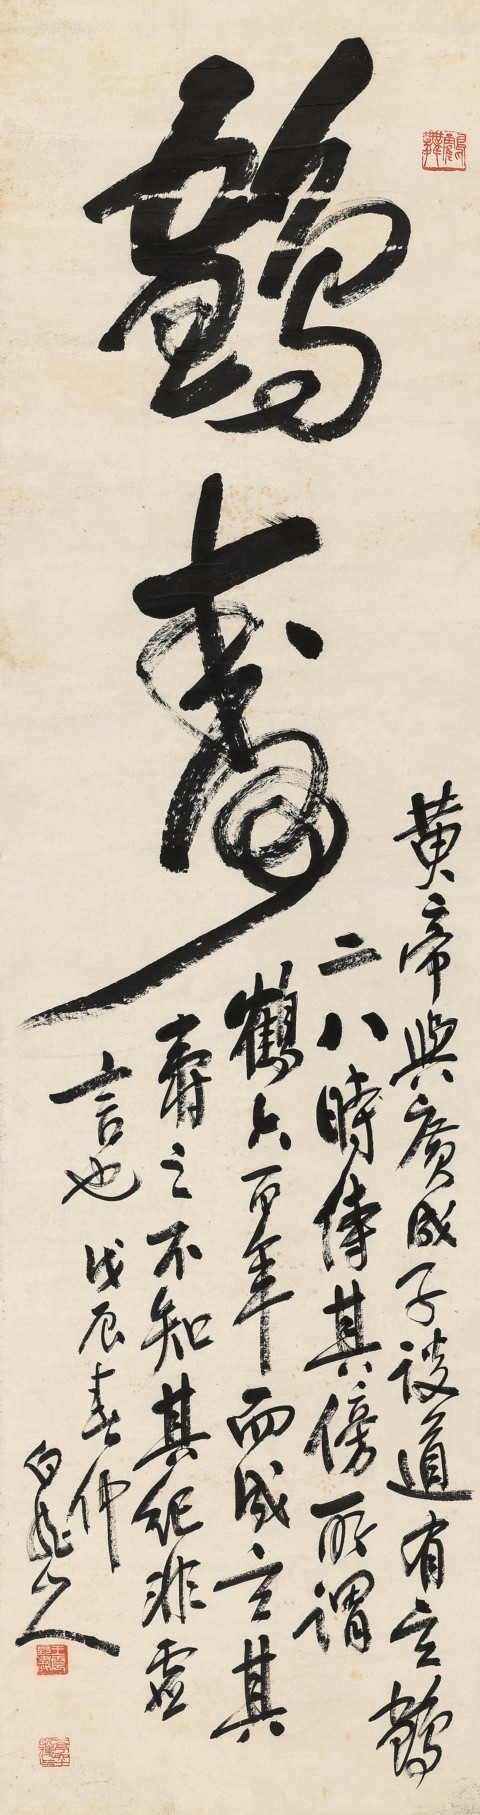 鶴壽
黃帝與廣成子談道有玄鶴
二八時侍其傍所謂
鶴六百年而成玄其
壽之不知其紀非虛
言也 戊辰春仲
白龍山人